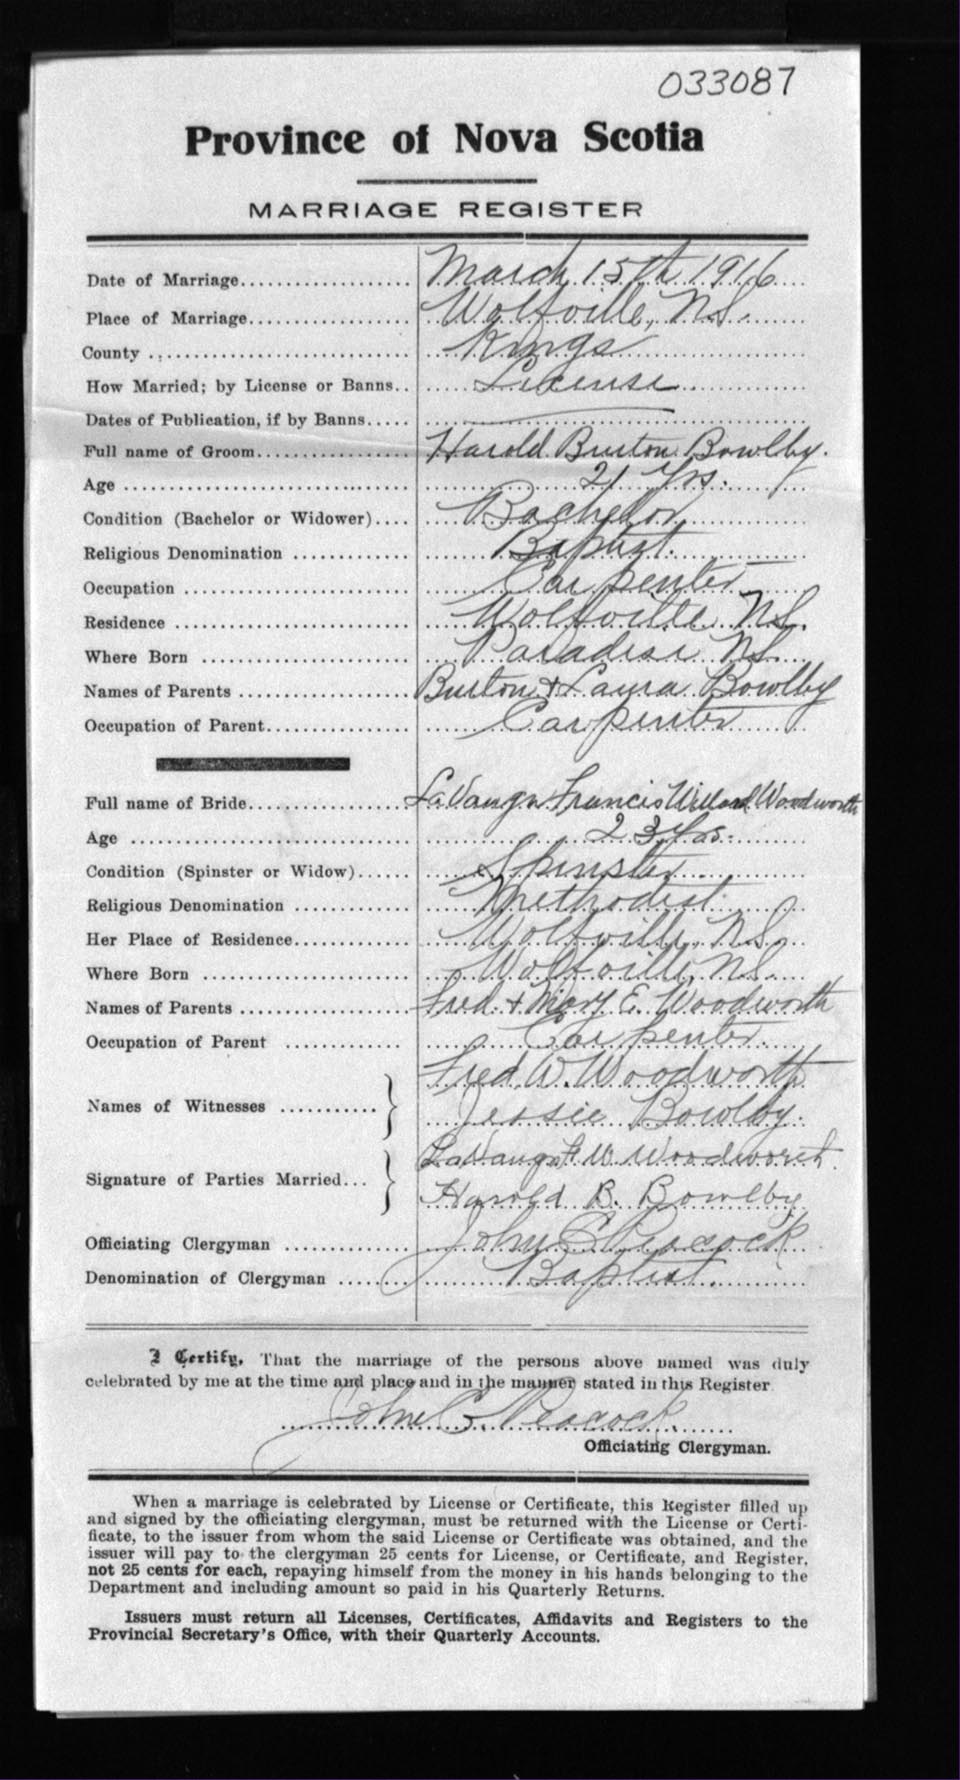 033087
Province of Nova Scotia
MARRIAGE REGISTER
Date of Marriage.................. March 15th 1916
Place of Marriage................. Wolfville, N.S.
County ........................... Kings
How Married; by License or Banns.. License
Dates of Publication, if by Banns.....
Full name of Groom................ Harold Burton Bowlby.
Age .............................. 21 Yrs.
Condition (Bachelor or Widower).... Bachelor
Religious Denomination ............ Baptist.
Occupation ....................... Carpenter
Residence ........................ Wolfville, N.S.
Where Born ....................... Paradise N.S.
Names of Parents ................. Burton & Laura Bowlby
Occupation of Parent.............. Carpenter
Full name of Bride................ LaVaugn Francis Willard Woodworth
Age .............................. 23 Yrs.
Condition (Spinster or Widow)...... Spinster
Religious Denomination ............ Methodist
Her Place of Residence............. Wolfville, N.S.
Where Born ....................... Wolfville, N.S.
Names of Parents .................. Fred. & Mary E. Woodworth
Occupation of Parent ............. Carpenter.
Names of Witnesses ........... Fred W. Woodworth
Jessie Bowlby.
Signature of Parties Married... LaVaugn F W Woodworth.
Harold B. Bowlby
Officiating Clergyman ............. John C. Peacock
Denomination of Clergyman ...... Baptist.
I Certify, That the marriage of the persons above named was duly
celebrated by me at the time and place and in the manner stated in this Register
John C. Peacock.
Officiating Clergyman.
When a marriage is celebrated by License or Certificate, this Register filled up
and signed by the officiating clergyman, must be returned with the License or Certi-
ficate, to the issuer from whom the said License or Certificate was obtained, and the
issuer will pay to the clergyman 25 cents for License, or Certificate, and Register,
not 25 cents for each, repaying himself from the money in his hands belonging to the
Department and including amount so paid in his Quarterly Returns.
Issuers must return all Licenses, Certificates, Affidavits and Registers to the
Provincial Secretary's Office, with their Quarterly Accounts.